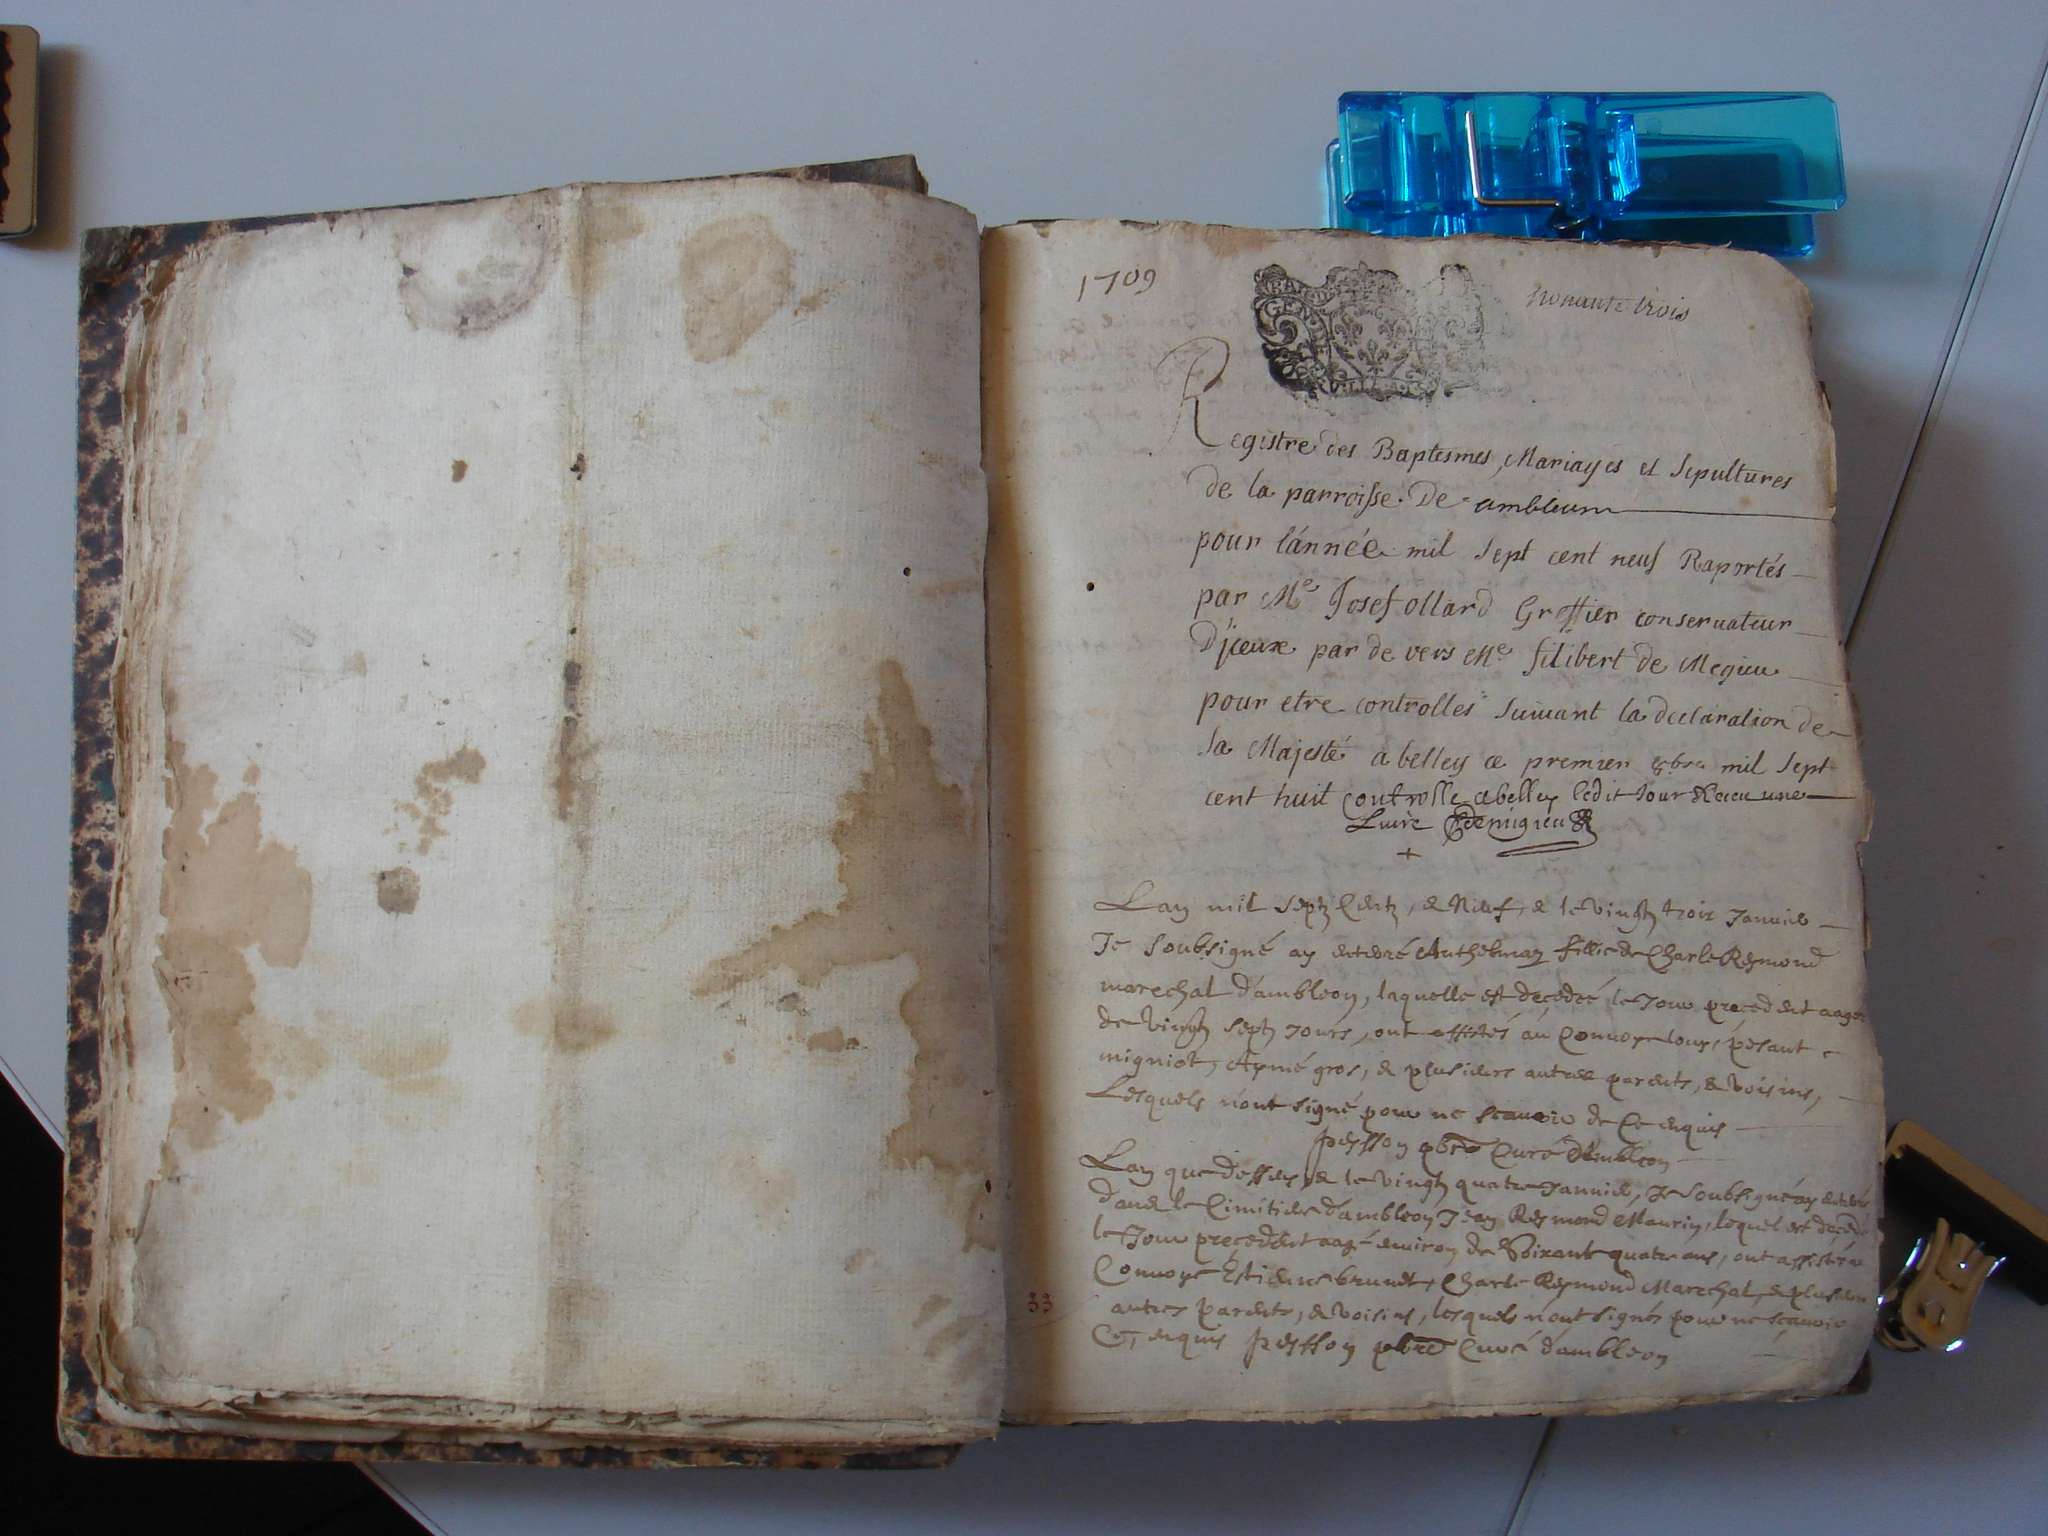 1709
nonante trois
GEN
Registre des Baptesmes, Mariages et Sepultures
de la parroisse De ambleum
pour l'année mil sept cent neuf Raportés
par Me Josef ollard Greffier conseruateur
D'jceux par de vers Me filibert de Megieu
pour etre controlles suiuant la declaration de
sa Majesté a belley ce premier mil sept
cent huit Controlle a belley ledit jour Receu une
Liure Demigieu
Lan mil sept Cents, & Neuf, & le vingt trois Januier
Je soubsigné ay enterré Anthelmaz fillie de Charle Reymond
marechal d'ambleon, laquelle est decedeé le Jour precedent aagee
de vingt sept Jours, ont assistés au Conuoye louys pesant
migniot, Aymé gros, & plusieurs autres parents, & voisins,
Lesquels n'ont signé pour ne scauoir de Ce enquis
peysson pbre Curé d'ambleon
Lan que dessus, & le vingt quatre Januier, Je soubsigné ay enterré
dans le Cimitiere d'ambleon Jean Reymond Maurin, lequel est decedé
le Jour precedent aagé enuiron de Soixante quatre ans, ont assisté au
Conuoye Estienne brunet, Charle Reymond Marechal, & plusieurs
autres parents, & voisins, lesquels n'ont signés pour ne scauoir
Ce, enquis peysson pbre Curé d'ambleon
33